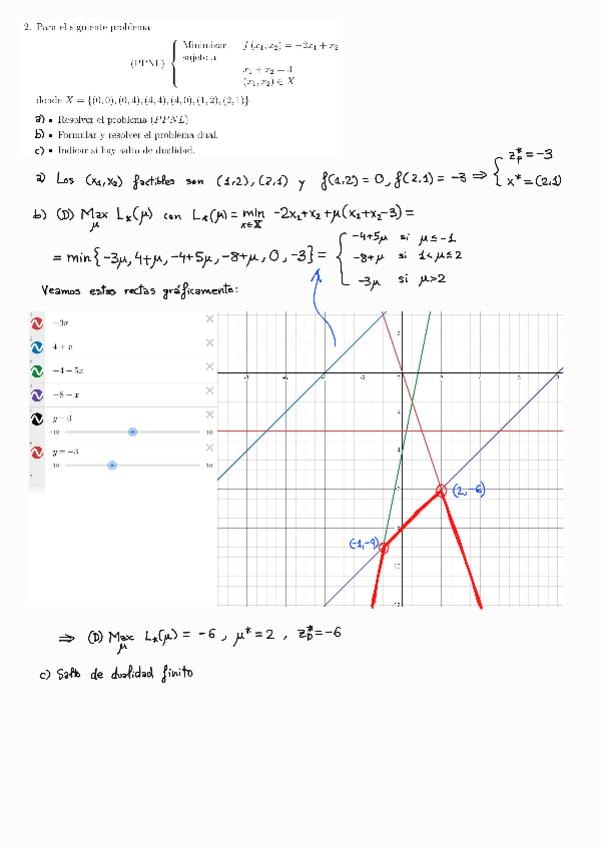 2. Para el siguiente problema
(PPNL) { Minimizar f(x₁, x₂) = −2x₁ + x₂
sujeto a
x₁ + x₂ = 3
(x₁, x₂) ∈ X
donde X = {(0,0), (0,4), (4,4), (4,0), (1,2), (2,1)}
a) • Resolver el problema (PPNL)
b) • Formular y resolver el problema dual.
c) • Indicar si hay salto de dualidad.
a) Los (x₁,x₂) factibles son (1,2), (2,1) y f(1,2) = 0, f(2,1) = -3 ⇒ { z*p = -3
x* = (2,1)
b) (D) Max L*(μ) con L*(μ) = min -2x₁+x₂+μ(x₁+x₂-3) =
μ x∈X
= min{-3μ, 4+μ, -4+5μ, -8+μ, 0, -3} = { -4+5μ si μ≤-1
-8+μ si 1<μ≤2
-3μ si μ>2
Veamos estas rectas gráficamente:
-3x
4 + x
-4 - 5x
-8 - x
y = 0
-10 10
y = -3
10 10
(2,-6)
(-1,-9)
⇒ (D) Max L*(μ) = -6, μ* = 2, z*D = -6
μ
c) Salto de dualidad finito